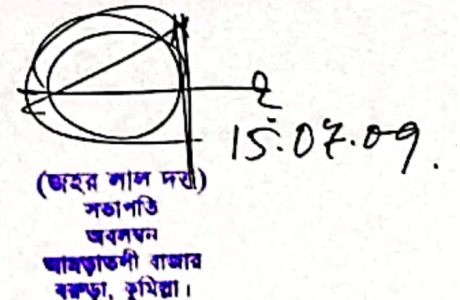 15.07.09.
(জহর লাল দত্ত)
সভাপতি
অবলম্বন
আমড়াতলী বাজার
বরুড়া, কুমিল্লা।